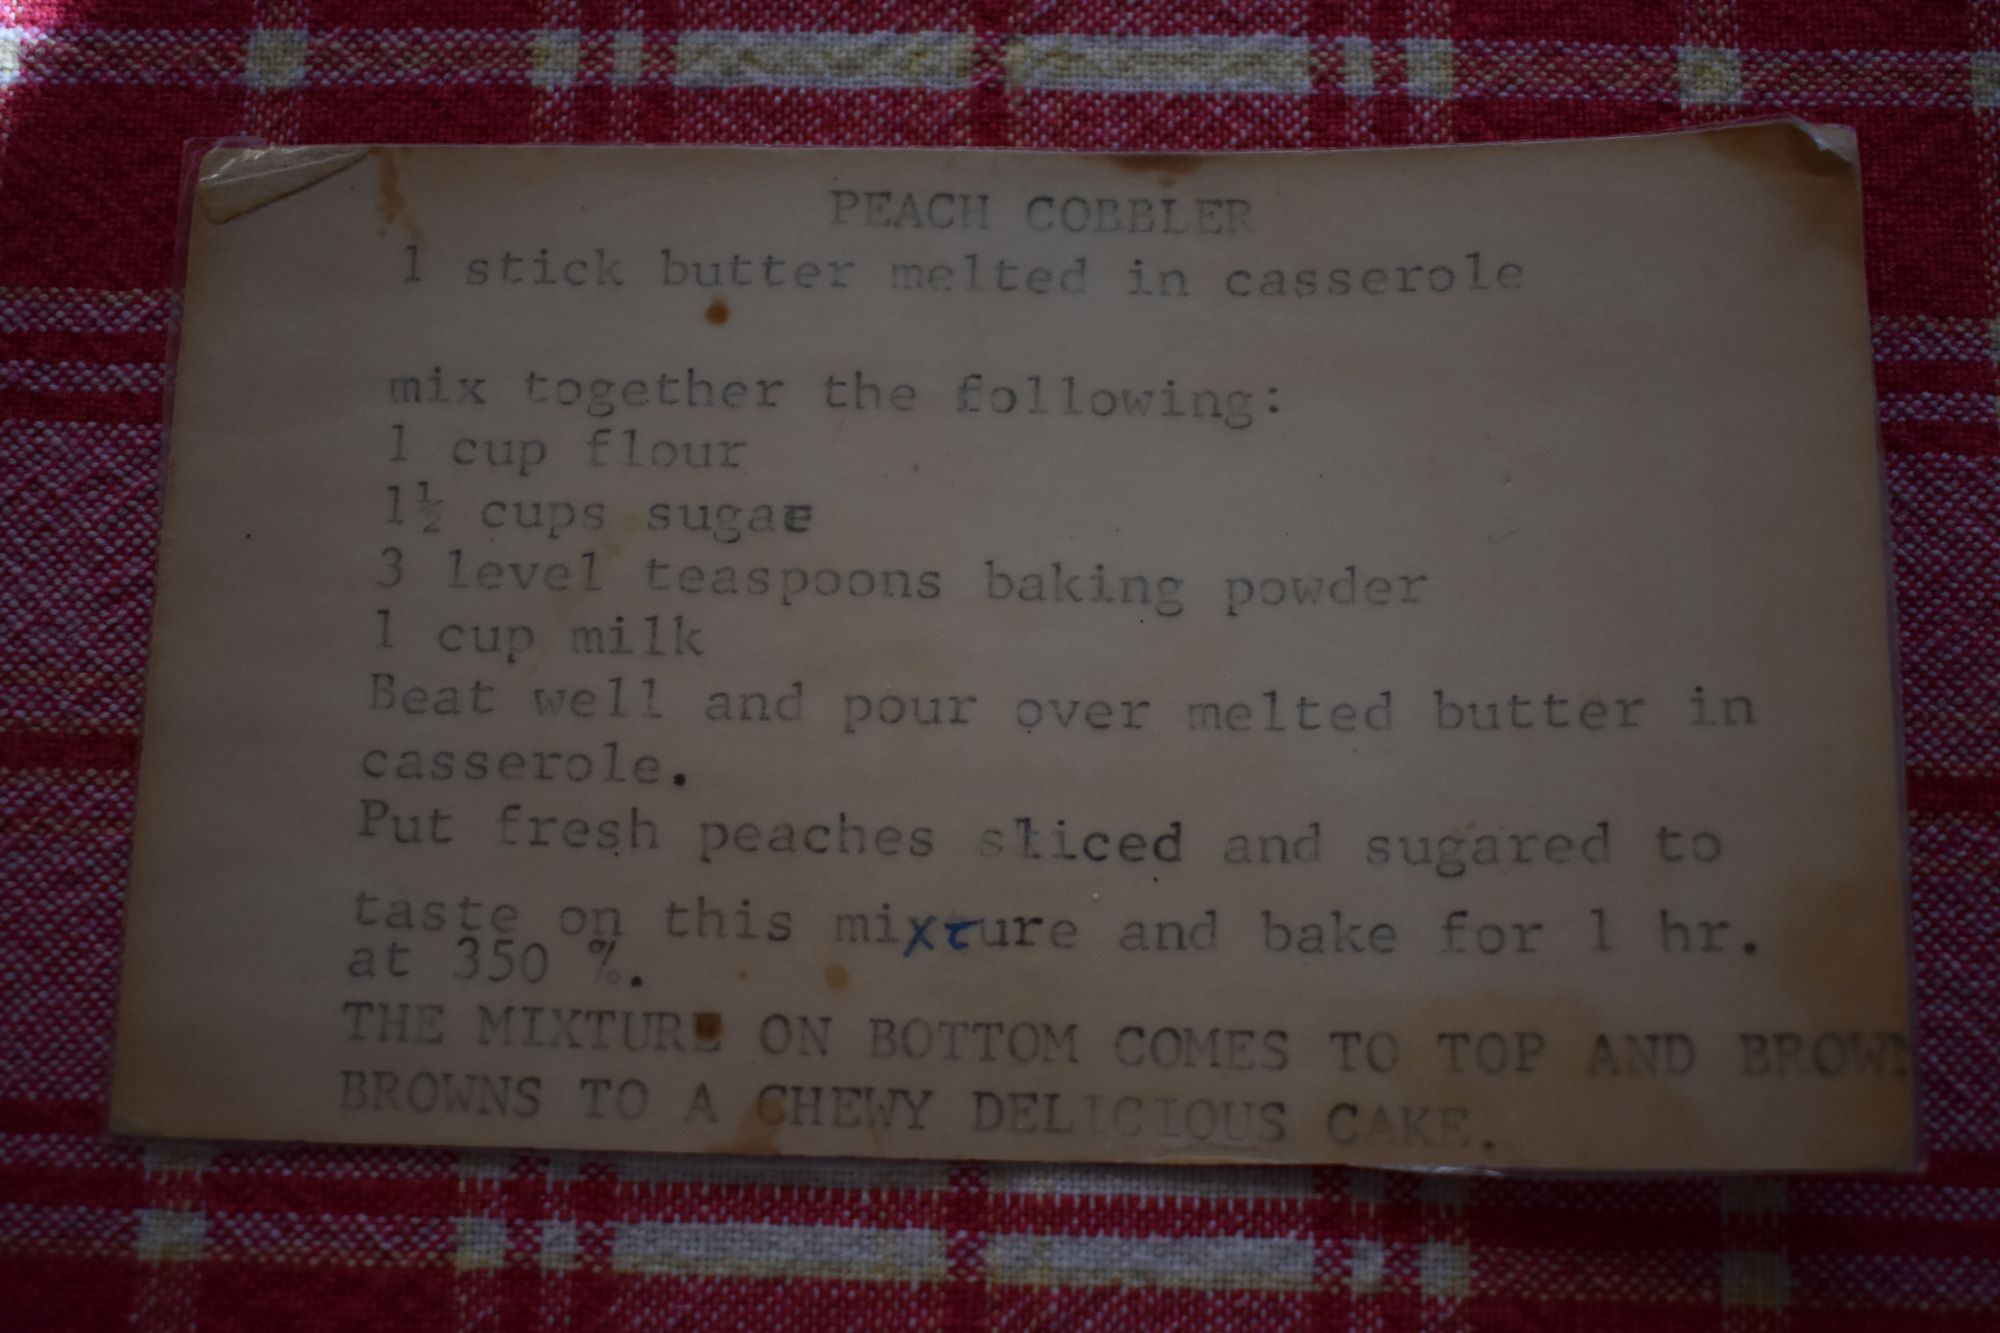 PEACH COBBLER
1 stick butter melted in casserole
mix together the following:
1 cup flour
1½ cups sugar
3 level teaspoons baking powder
1 cup milk
Beat well and pour over melted butter in
casserole.
Put fresh peaches sliced and sugared to
taste on this mixture and bake for 1 hr.
at 350 %.
THE MIXTURE ON BOTTOM COMES TO TOP AND BROWN
BROWNS TO A CHEWY DELICIOUS CAKE.